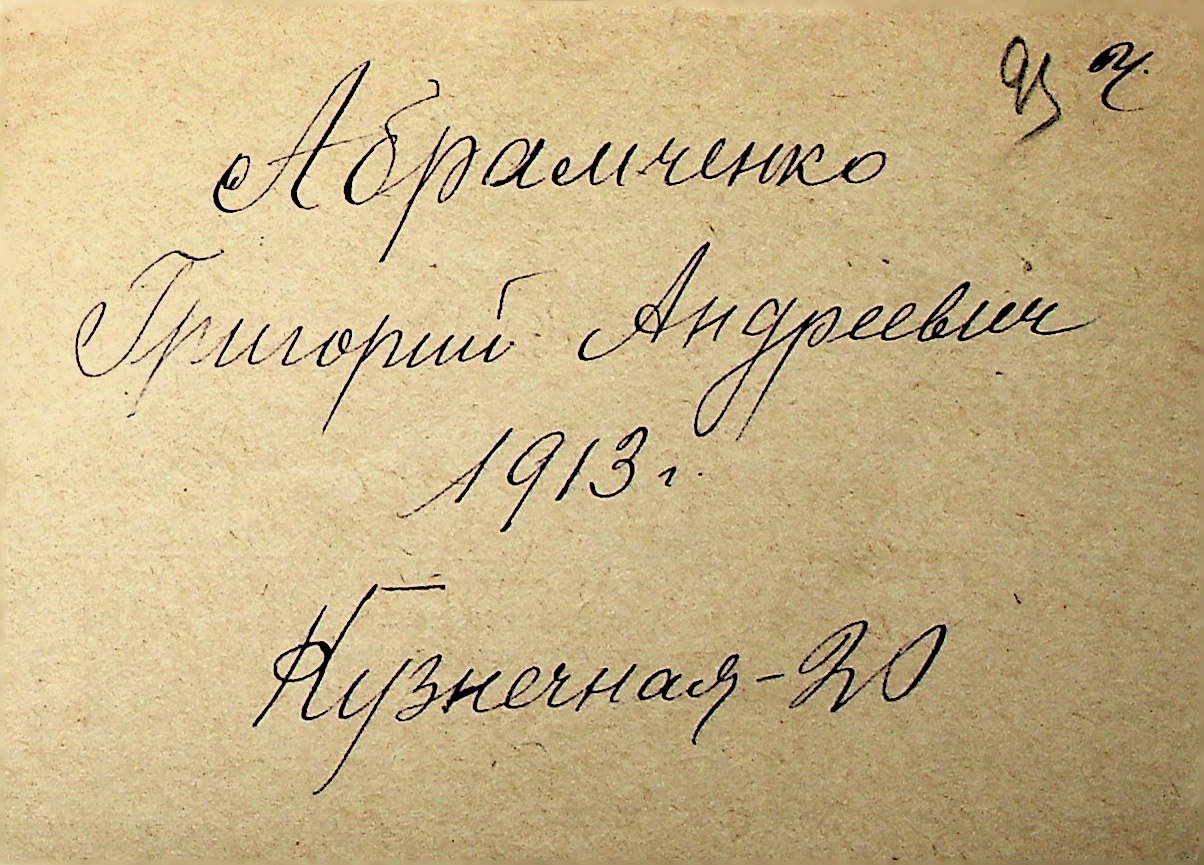 Абрамченко
Григорий Андреевич
1913 г.
Кузнечная-20